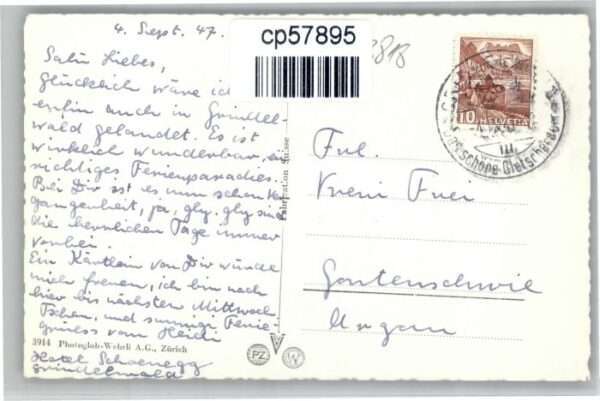 4. Sept. 47.
cp57895
Salü Liebes,
Glücklich wäre ich
auch in Grindel-
wald gelandet. Es ist
wirklich wunderbar, ein
richtiges Ferienparadies.
Bei Dir ist es nun schon Ver-
gangenheit, ja, gly. gly sind
die herrlichen Tage immer
vorbei.
Ein Kärtlein von Dir würde
mich freuen, ich bin noch
hier bis nächsten Mittwoch
Tschau, und sunnige Ferie
grüess vom Heidi
Hotel Schoenegg
Grindelwald
3914 Photoglob-Wehrli A.G., Zürich
Fabrication Suisse
PZ
W
10 HELVETIA
Das schöne Gletscherdorf
Frl.
Vreni Frei
Gontenschwil
Aargau